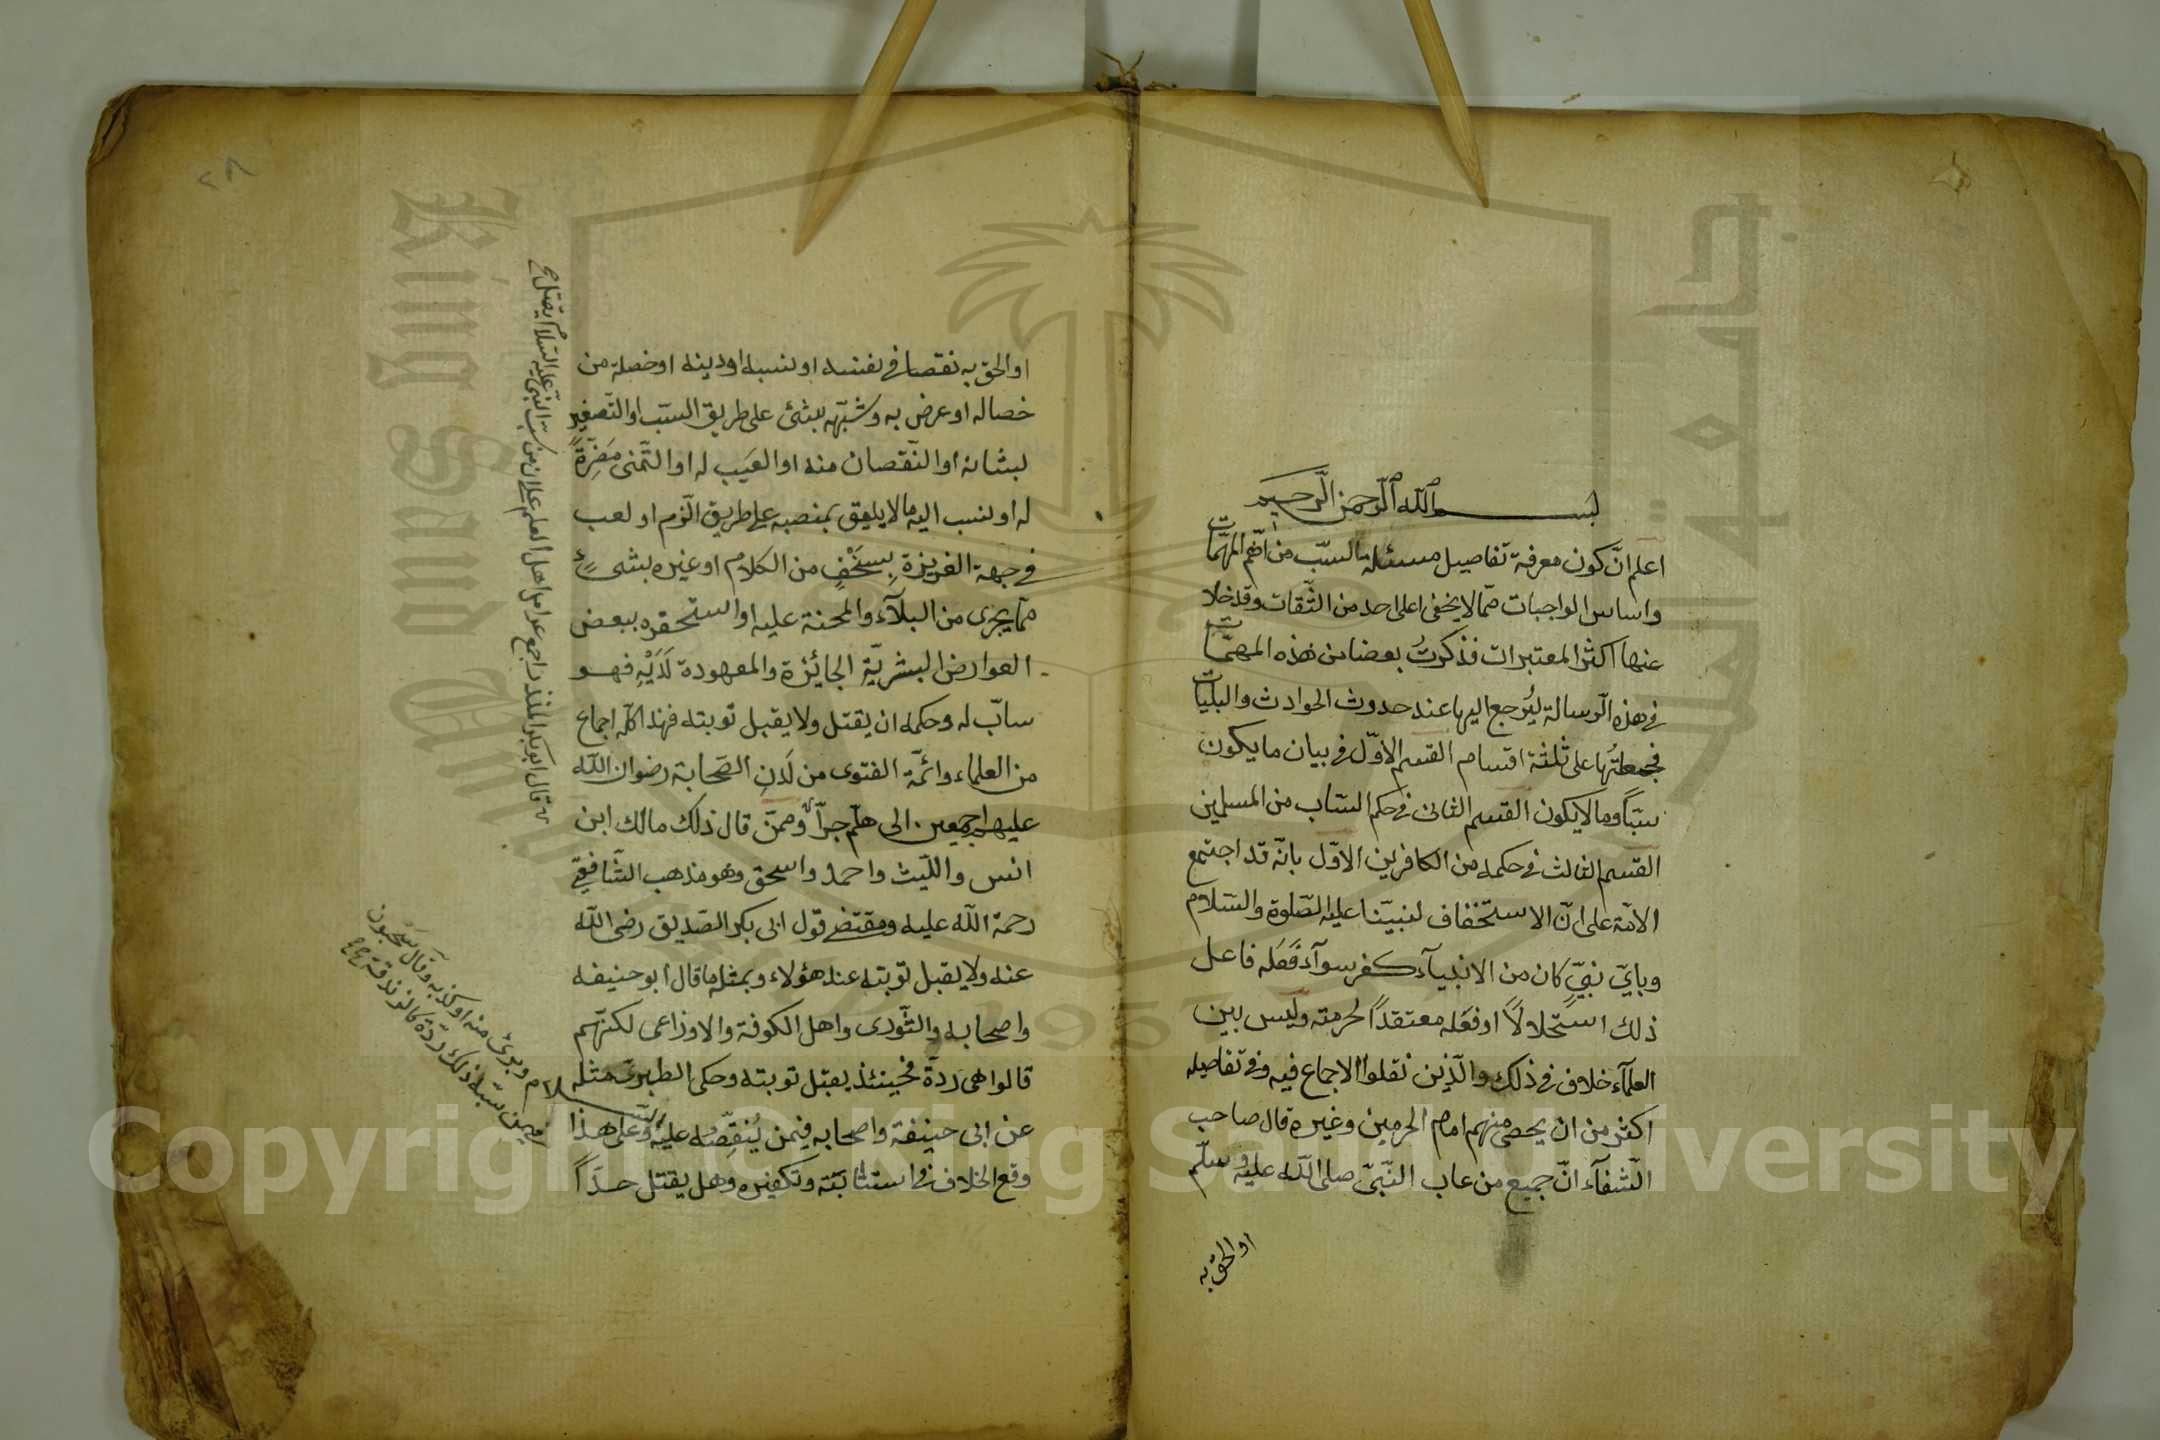 بسم الله الرحمن الرحيم
اعلم انّ كون معرفة تفاصيل مسئلة السّب من اهّم المهمّات
واساس الواجبات ممّا لا يخفى على احد من الثّقات وقد خلا
عنها اكثر المعتبرات فذكرتُ بعضا من هذه المهمّات
فى هذه الرّسالة ليُرجع اليها عند حدوث الحوادث والبليّات
فجعلتُها على ثلثة اقسام القسم الاوّل فى بيان ما يكون
سبّاً وما لا يكون القسم الثانى فى حكم السّاب من المسلمين
القسم الثالث فى حكمه من الكافرين الاوّل بانّه قد اجتمع
الامّة على انّ الاستخفاف لنبيّنا عليه الصّلوة والسّلام
وبايّ نبيّ كان من الانبيآء كفر سوآء فَعَله فاعل
ذلك استحلالاً او فعَله معتقداً لحرمته وليس بين
العلمآء خلاف فى ذلك والّذين نقلوا الاجماع فيه وفى تفاصيله
اكثر من ان يحصى منهم امام الحرمين وغيره قال صاحب
الشّفآء انّ جميع من عاب النّبيّ صلى الله عليه وسلّم
او الحق به
٢٨
او الحق به نقصا فى نفسه او نسبه او دينه او خصلة من
خصاله او عرض به وشبّهه بشئ على طريق السبّ او التّصغير
لبشانه او النّقصان منه او العَيب له او التّمنى مَضِرّةً
له او نسب اليه ما لا يليق بمنصبه على طريق الّزم او لعب
فى جهة الغريزة بِسَخْفٍ من الكلام او غيره بشىءٍ
ممّا يجرى من البلآء والمحنة عليه او استحقره ببعض
العوارض البشريّةِ الجائزة والمعهودة لَدَيْهِ فهو
سابّ له وحكمه ان يقتل ولا يقبل توبته فهذا كلّه اجماع
من العلماء وائمّة الفتوى من لَدنِ الصّحابة رضوان الله
عليهم اجمعين الى هلّم جرّاً وممّن قال ذلك مالك ابن
انس والليّث واحمد واسحق وهو مذهب الشّافعيّ
رحمة الله عليه ومقتضى قول ابى بكر الصّديق رضى الله
عنه ولا يقبل توبته عند هؤلاء وبمثله ما قال ابو حنيفه
واصحابه والثّورى واهل الكوفة والاوزاعى لكنّهم
قالوا هى ردةّ فحينئذ يقبل توبته وحكى الطبرىّ مثله
عن ابى حنيفة واصحابه فيمن يُنقِصُه عليه السّلام وعلى هذا
وقع الخلاف فى استتابته وتكفيره وهل يقتل حدّاً
قال ابو بكر المنذر اجمع عوام اهل العلم على ان من سب النبىّ عليه السّلام يقتل
وبرئ منه او كذبه وقال سَحْنون
فيمن سبّه ذلك ردّة كالزندقة